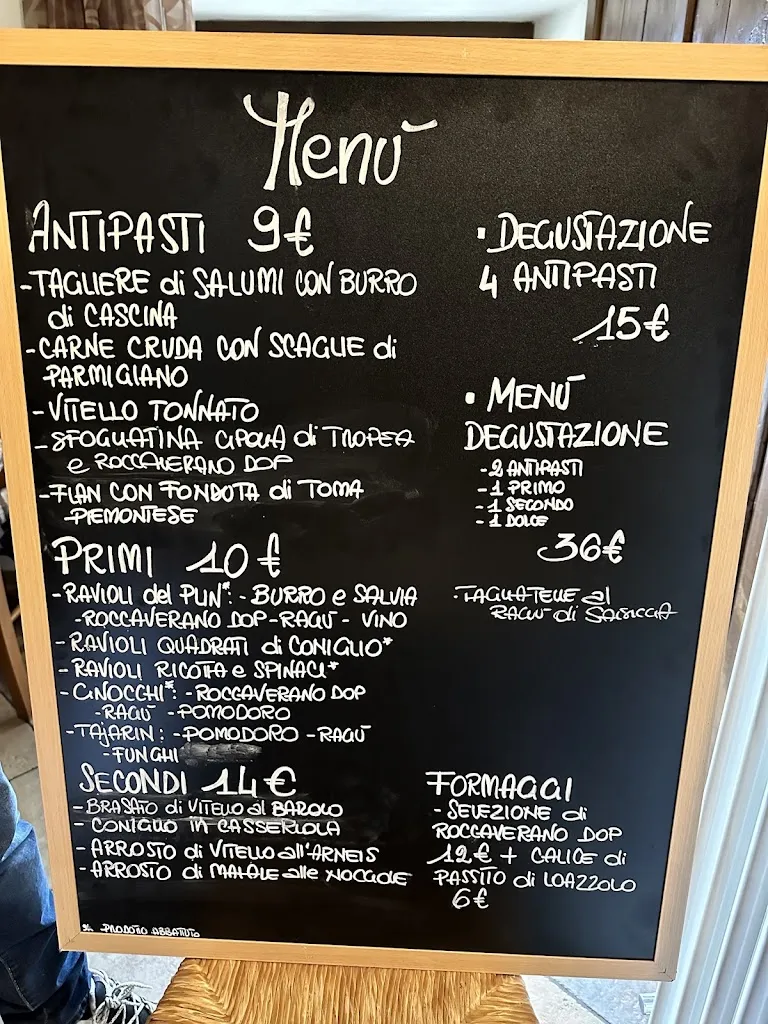 Menù
ANTIPASTI 9€
-TAGLIERE di SALUMI CON BURRO
di CASCINA
-CARNE CRUDA CON SCAGLIE di
PARMIGIANO
-VITELLO TONNATO
-SFOGLIATINA CIPOLLA di TROPEA
e ROCCAVERANO DOP
-FLAN CON FONDUTA di TOMA
PIEMONTESE
PRIMI 10€
-RAVIOLI del PLIN*: -BURRO e SALVIA
-ROCCAVERANO DOP-RAGÙ - VINO
-RAVIOLI QUADRATI di CONIGLIO*
-RAVIOLI RICOTTA e SPINACI*
-GNOCCHI*: -ROCCAVERANO DOP
-RAGÙ -POMODORO
-TAJARIN: -POMODORO -RAGÙ
-FUNGHI
SECONDI 14€
-BRASATO di VITELLO al BAROLO
- CONIGLIO IN CASSERUOLA
-ARROSTO di VITELLO all'ARNEIS
-ARROSTO di MAIALE alle NOCCIOLE
* PRODOTTO ABBATTUTO
• DEGUSTAZIONE
4 ANTIPASTI
15€
• MENÙ
DEGUSTAZIONE
-2 ANTIPASTI
-1 PRIMO
-1 SECONDO
-1 DOLCE
36€
-TAGLIATELLE al
RAGÙ di SALSICCIA
FORMAGGI
- SELEZIONE di
ROCCAVERANO DOP
12€ + CALICE di
PASSITO di LOAZZOLO
6€